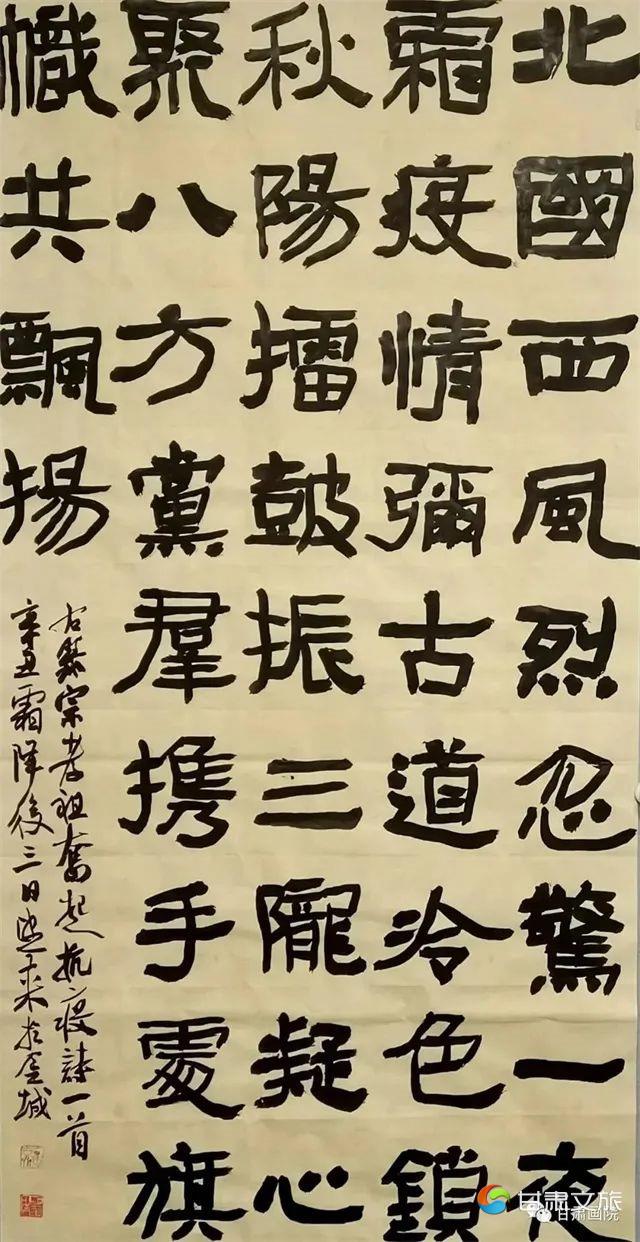 北國西風烈忽驚一夜
霜疫情彌古道冷色鎖
秋陽擂鼓振三隴凝心
聚八方黨羣携手處旗
幟共飄揚
右錄宗孝祖奮起抗疫詩一首
辛丑霜降後三日 於金城
甘肃文旅
甘肃画院